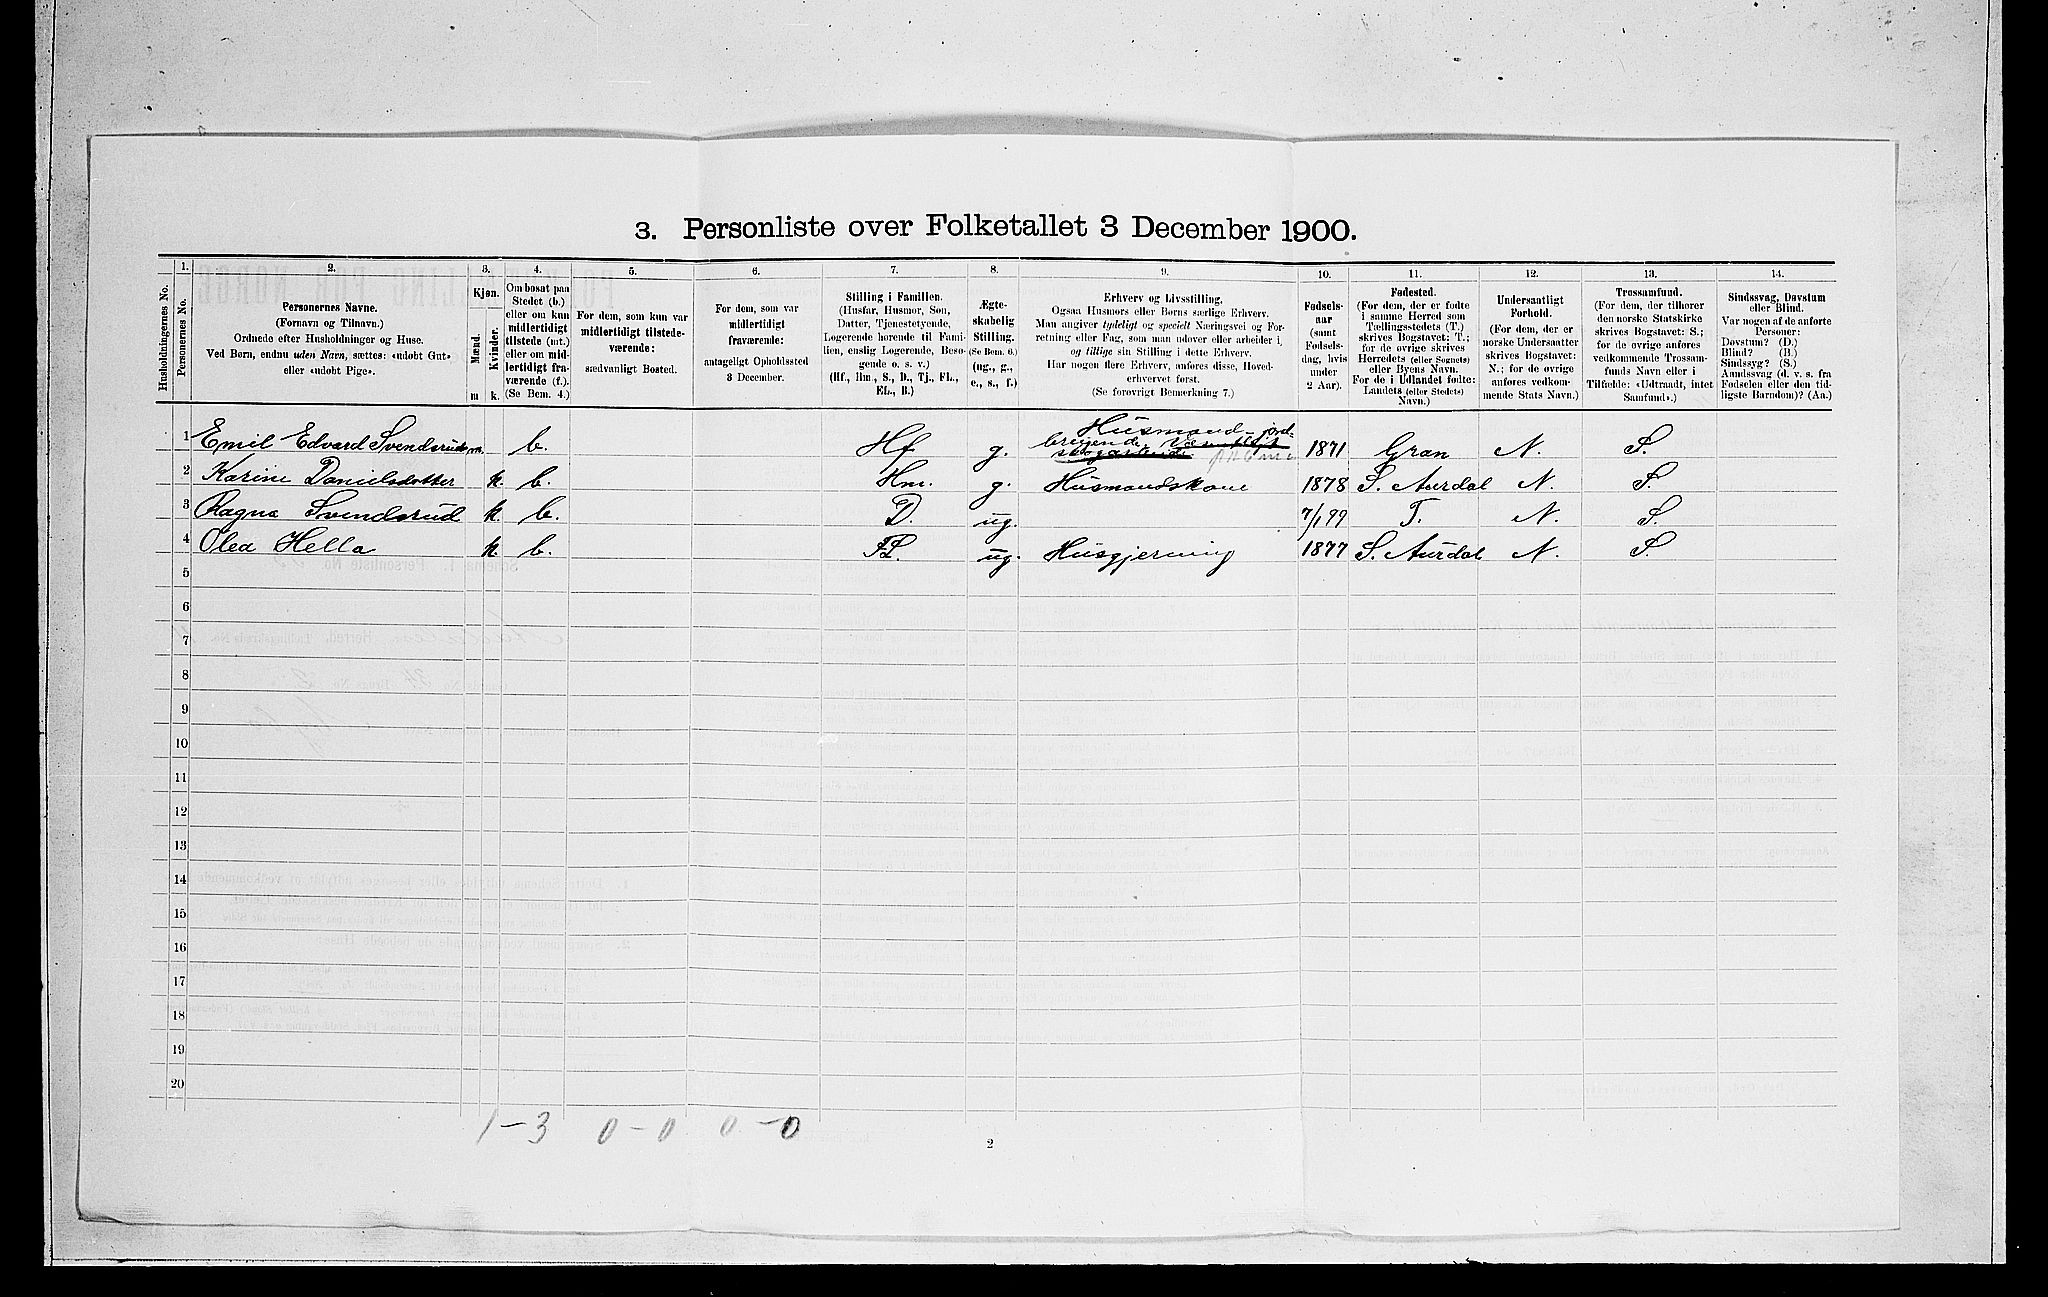 3. Personliste over Folketallet 3 December 1900.
1. 2. 3. 4. 5. 6. 7. 8. 9. 10. 11. 12. 13. 14.
Husholdningernes No.
Personernes No.
Personernes Navne.
(Fornavn og Tilnavn.)
Ordnede efter Husholdninger og Huse.
Ved Børn, endnu uden Navn, sættes: «udøbt Gut»
eller «udøbt Pige».
Kjøn.
Mænd.
Kvinder.
m k.
Om bosat paa
Stedet (b.)
eller om kun
midlertidigt
tilstede (mt.)
eller om mid-
lertidigt fra-
værende (f.).
(Se Bem. 4.)
For dem, som kun var
midlertidigt tilstede-
værende:
sædvanligt Bosted.
For dem, som var
midlertidigt
fraværende:
antageligt Opholdssted
3 December.
Stilling i Familien.
(Husfar, Husmor, Søn,
Datter, Tjenestetyende,
Logerende hørende til Fami-
lien, enslig Logerende, Besø-
gende o. s. v.)
(Hf., Hm., S., D., Tj., Fl.,
El., B.)
Ægte-
skabelig
Stilling.
(Se Bem. 6.)
(ug., g.,
e., s., f.)
Erhverv og Livsstilling.
Ogsaa Husmors eller Børns særlige Erhverv.
Man angiver tydeligt og specielt Næringsvei og For-
retning eller Fag, som man udøver eller arbeider i,
og tillige sin Stilling i dette Erhverv.
Har nogen flere Erhverv, anføres disse, Hoved-
erhvervet først.
(Se forøvrigt Bemerkning 7.)
Fødsels-
aar
(samt
Fødsels-
dag, hvis
under
2 Aar).
Fødested.
(For dem, der er fødte
i samme Herred som
Tællingsstedets (T.)
skrives Bogstavet: T.;
for de øvrige skrives
Herredets (eller Sognets)
eller Byens Navn.
For de i Udlandet fødte:
Landets (eller Stedets)
Navn.)
Undersaatligt
Forhold.
(For dem, der er
norske Undersaatter
skrives Bogstavet:
N.; for de øvrige
anføres vedkom-
mende Stats Navn.)
Trossamfund.
(For dem, der tilhører
den norske Statskirke
skrives Bogstavet: S.;
for de øvrige anføres
vedkommende Trossam-
funds Navn eller i
Tilfælde: «Udtraadt, intet
Samfund».)
Sindssvag, Døvstum
eller Blind.
Var nogen af de anførte
Personer:
Døvstum? (D.)
Blind? (B.)
Sindssyg? (S.)
Aandssvag (d. v. s. fra
Fødselen eller den tid-
ligste Barndom)? (Aa.)
1 Emil Edvard Svendsrud m. b. Hf g. Husmand jord- brugende 1871 Gran N. S.
2 Karine Danielsdotter k. b. Hm. g. Husmandskone 1878 S. Aurdal N. S.
3 Ragna Svendsrud k. b. D. ug. 7/1 99 T. N. S.
4 Olea Hella k b. FL. ug. Husgjerning 1877 S. Aurdal N. S.
5
6
7
8
9
10
11
12
13
14
15
16
17
18
19
20
1 – 3 0 – 0 0 – 0
2